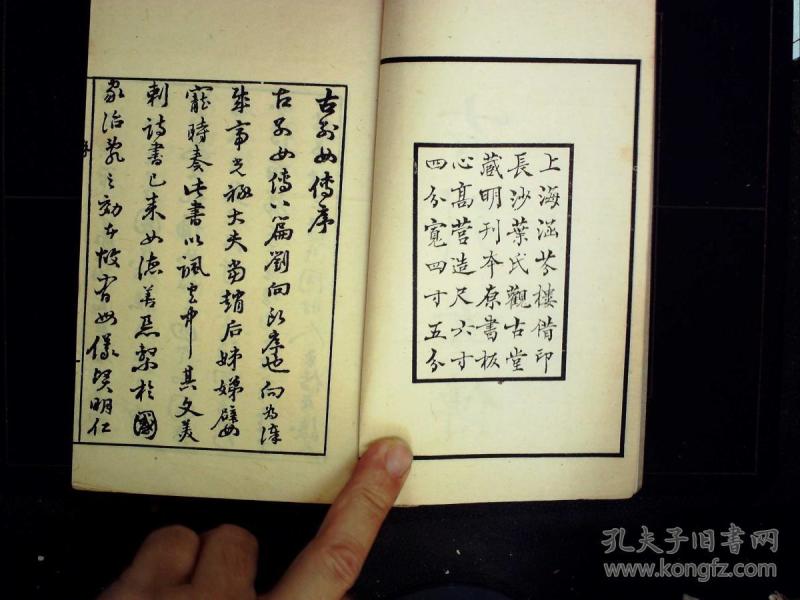 上海涵芬樓借印
長沙葉氏觀古堂
藏明刊本原書板
心高營造尺六寸
四分寬四寸五分
古列女傳序
古列女傳八篇劉向所序也向為漢
成帝光祿大夫當趙后姊娣嬖
寵時奏此書以諷宮中其文美
刺詩書已來女德善惡繫於國
家治亂之効者故有母儀賢明仁
序
一
孔夫子旧书网
www.kongfz.com